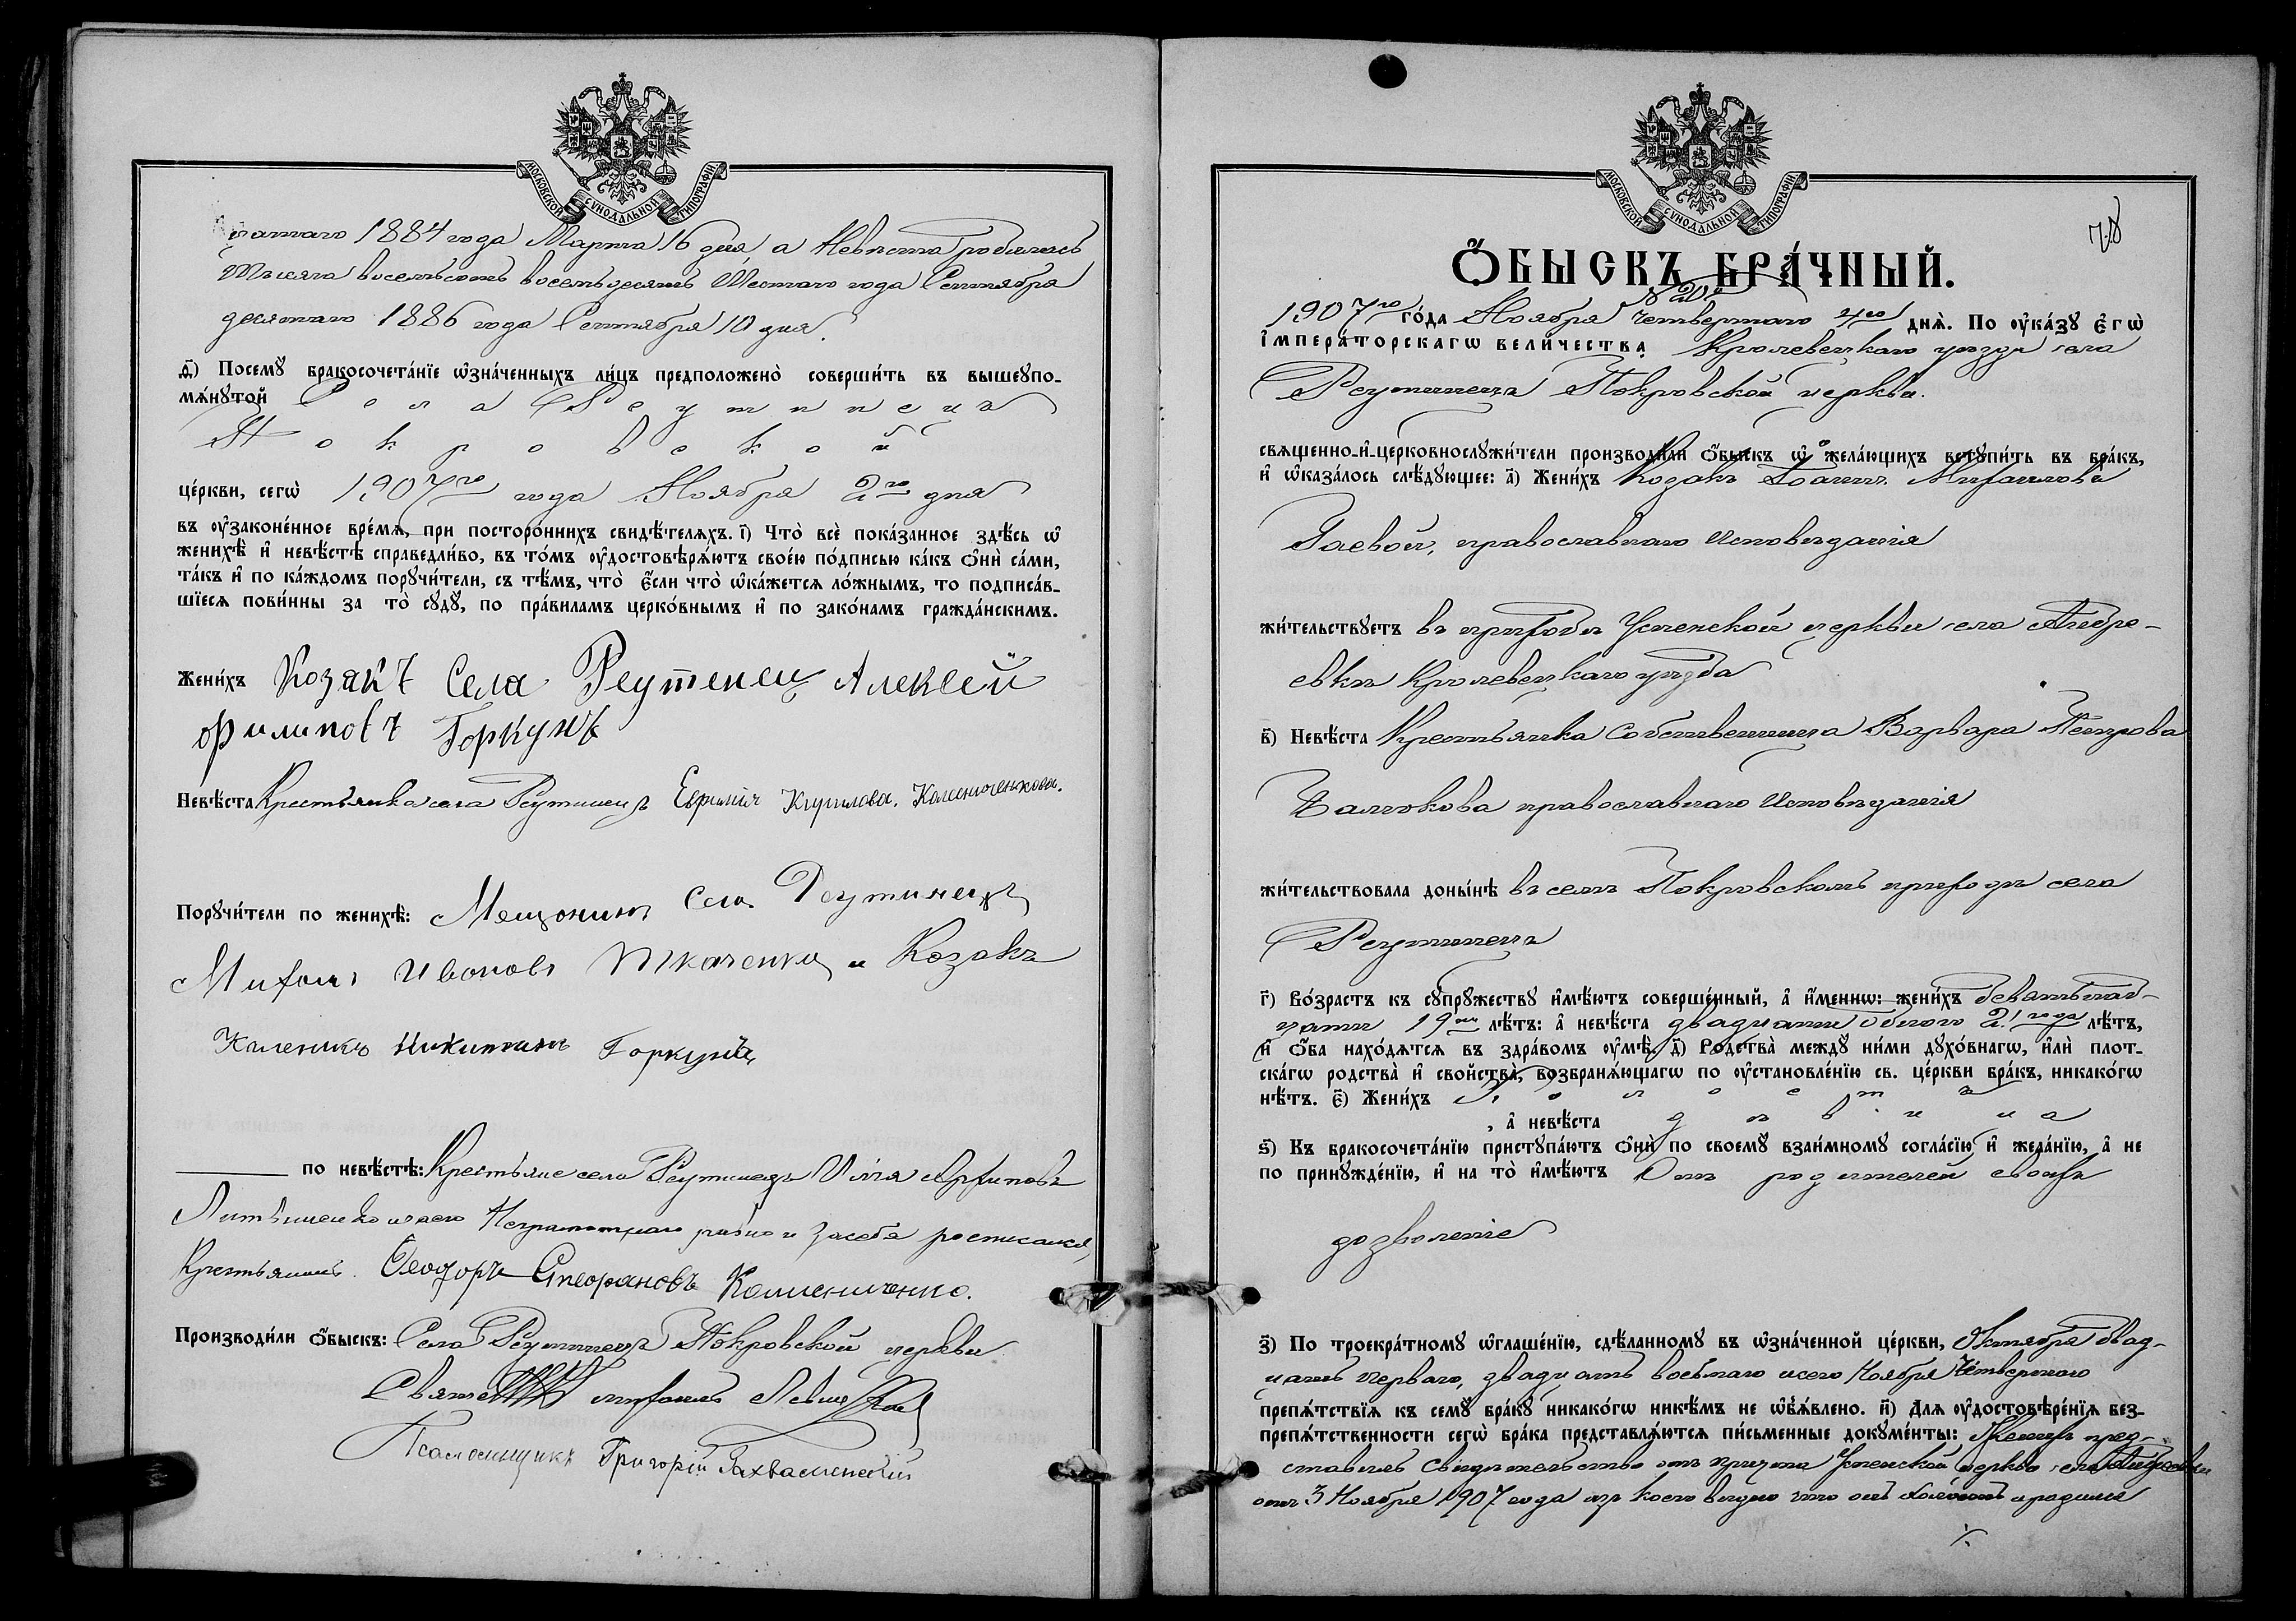 МОСКОВСКОЙ СѴНОДАЛЬНОЙ ТИПОГРАФІИ
1884 года Марта 16 дня, а Невѣста родилась
Тысяча восемьсотъ восемьдесятъ Шестаго года Сентября
десятаго 1886 года Сентября 10 дня.
д҃і) Посемꙋ бракосочета́нїе ѡ҆зна́ченныхъ ли́цъ предположено̀ соверши́ть въ вышеꙋпо-
мѧ́нꙋтой Села Реутинецъ
Покровской
це́ркви, сегѡ̀ 1907го года Ноября 2го дня
въ ᲂу҆законе́нное вре́мѧ, при посторо́ннихъ свидѣ́телѧхъ. і҃) Что̀ всѐ пока́занное здѣ́сь ѡ҆
женихѣ̀ и҆ невѣ́стѣ справедли́во, въ то́мъ ᲂу҆достовѣрѧ́ютъ свое́ю по́дписью ка́къ ѻ҆нѝ са́ми,
та́къ и҆ по ка́ждомъ порꙋчи́тели, съ тѣ́мъ, что̀ є҆́сли что̀ ѡ҆ка́жетсѧ ло́жнымъ, то подписа́в-
шїесѧ пови́нны за то̀ сꙋдꙋ̀, по пра́виламъ церко́внымъ и҆ по зако́намъ гражда́нскимъ.
Жени́хъ Козакъ Села Реутенец Алексей
Филиповъ Горкунъ
Невѣ́ста Крестьянка села Реутинецъ Евфимія Кирилова. Калениченкова.
Порꙋчи́тели по женихѣ̀: Мещонинъ Села Реутинецъ
Михаилъ Ивоновъ Ткаченко и Козакъ
Каленикъ Никитинъ Горкунъ
по невѣ́стѣ: Крестьяне села Реутинецъ Илія
Неграмотнаго и засебя росписался
Крестьянинъ Ѳеодоръ Стефановъ Калениченко.
Производи́ли ѻ҆́быскъ: Села Реутинецъ Покровской церкви
Митрофанъ
Псаломщикъ Григорій
МОСКОВСКОЙ СѴНОДАЛЬНОЙ ТИПОГРАФІИ
78
Ѻ҆́БЫСКЪ БРА́ЧНЫЙ.
1907го го́да Ноября четвертаго 4го днѧ̀. По ᲂу҆ка́зꙋ Є҆гѡ̀
І҆мпера́торскагѡ Вели́чества Кролевецкаго уѣзда села
Реутинецъ Покровской церкви.
свѧщенно-и҆-церковнослꙋжи́тели производи́ли ѻ҆́быскъ ѡ҆ жела́ющихъ встꙋпи́ть въ бра́къ,
и҆ ѡ҆каза́лось слѣ́дꙋющее: а҃) Жени́хъ Козакъ Іоаннъ Михаиловъ
Гаевой, православнаго исповѣданія
жи́тельствꙋетъ въ приходѣ Успенской церкви села Андре-
евки Кролевецкаго уѣзда
в҃) Невѣ́ста Крестьянка Собственница Варвара Петрова
православнаго исповѣданія
жи́тельствовала доны́нѣ въ семъ Покровскомъ приходѣ села
Реутинецъ
г҃) Во́зрастъ къ сꙋпрꙋ́жествꙋ и҆мѣ́ютъ соверше́нный, а҆ и҆́меннѡ: жени́хъ девятьнад-
цати 19ти лѣ́тъ: а҆ невѣ́ста двадцати одного 21го года лѣ́тъ,
и҆ ѻ҆́ба нахо́дѧтсѧ въ здра́вомъ ᲂу҆мѣ̀. д҃) Родства̀ междꙋ ни́ми дꙋхо́внагѡ, и҆лѝ плот-
ска́гѡ родства̀ и҆ свойства̀, возбранѧ́ющагѡ по ᲂу҆становле́нїю св. це́ркви бра́къ, никако́гѡ
нѣ́тъ. є҃) Жени́хъ холостъ
, а҆ невѣ́ста дѣвица
ѕ҃) Къ бракосочета́нїю пристꙋпа́ютъ ѻ҆нѝ по своемꙋ̀ взаи́мномꙋ согла́сїю и҆ жела́нїю, а҆ не
по принꙋжде́нїю, и҆ на то̀ и҆мѣ́ютъ Отъ родителей своихъ
дозволеніе
з҃) По троекра́тномꙋ ѡ҆глаше́нїю, сдѣ́ланномꙋ въ ѡ҆зна́ченной це́ркви, Октября двад-
цать перваго, двадцать восьмаго и сего Ноября Четвертаго
препѧ́тствїѧ къ семꙋ̀ бра́кꙋ никако́гѡ никѣ́мъ не ѡ҆б̾ѧ́влено. и҃) Длѧ ᲂу҆достовѣре́нїѧ без-
препѧ́тственности сегѡ̀ бра́ка представлѧ́ютсѧ пи́сьменные докꙋме́нты: Женихъ пред-
ставилъ Свидѣтельство отъ причта Успенской церкви села Андреевки
отъ 3 Ноября 1907 года изъ коего видно что онъ холостъ и родился